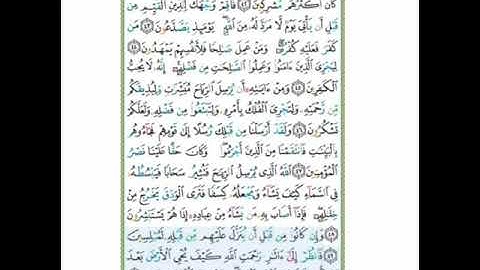 كَانَ أَكْثَرُهُم مُّشْرِكِينَ ﴿٤٢﴾ فَأَقِمْ وَجْهَكَ لِلدِّينِ الْقَيِّمِ مِن
قَبْلِ أَن يَأْتِيَ يَوْمٌ لَّا مَرَدَّ لَهُ مِنَ اللَّهِ يَوْمَئِذٍ يَصَّدَّعُونَ ﴿٤٣﴾ مَن
كَفَرَ فَعَلَيْهِ كُفْرُهُ وَمَنْ عَمِلَ صَالِحًا فَلِأَنفُسِهِمْ يَمْهَدُونَ ﴿٤٤﴾
لِيَجْزِيَ الَّذِينَ ءَامَنُوا وَعَمِلُوا الصَّالِحَاتِ مِن فَضْلِهِ إِنَّهُ لَا يُحِبُّ
الْكَافِرِينَ ﴿٤٥﴾ وَمِنْ ءَايَاتِهِ أَن يُرْسِلَ الرِّيَاحَ مُبَشِّرَاتٍ وَلِيُذِيقَكُم
مِّن رَّحْمَتِهِ وَلِتَجْرِيَ الْفُلْكُ بِأَمْرِهِ وَلِتَبْتَغُوا مِن فَضْلِهِ وَلَعَلَّكُمْ
تَشْكُرُونَ ﴿٤٦﴾ وَلَقَدْ أَرْسَلْنَا مِن قَبْلِكَ رُسُلًا إِلَى قَوْمِهِمْ فَجَاءُوهُم
بِالْبَيِّنَاتِ فَانتَقَمْنَا مِنَ الَّذِينَ أَجْرَمُوا وَكَانَ حَقًّا عَلَيْنَا نَصْرُ
الْمُؤْمِنِينَ ﴿٤٧﴾ اللَّهُ الَّذِي يُرْسِلُ الرِّيَاحَ فَتُثِيرُ سَحَابًا فَيَبْسُطُهُ
فِي السَّمَاءِ كَيْفَ يَشَاءُ وَيَجْعَلُهُ كِسَفًا فَتَرَى الْوَدْقَ يَخْرُجُ مِنْ
خِلَالِهِ فَإِذَا أَصَابَ بِهِ مَن يَشَاءُ مِنْ عِبَادِهِ إِذَا هُمْ يَسْتَبْشِرُونَ
﴿٤٨﴾ وَإِن كَانُوا مِن قَبْلِ أَن يُنَزَّلَ عَلَيْهِم مِّن قَبْلِهِ لَمُبْلِسِينَ
﴿٤٩﴾ فَانظُرْ إِلَى ءَاثَارِ رَحْمَتِ اللَّهِ كَيْفَ يُحْيِ الْأَرْضَ بَعْدَ